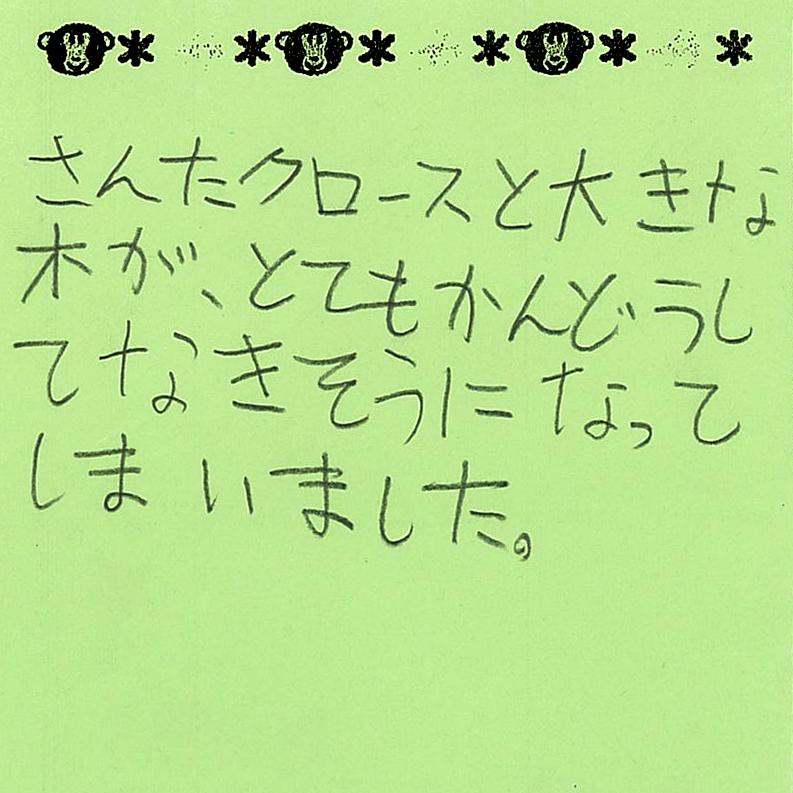 さんたクロースと大きな
木が、とてもかんどうし
てなきそうになって
しまいました。